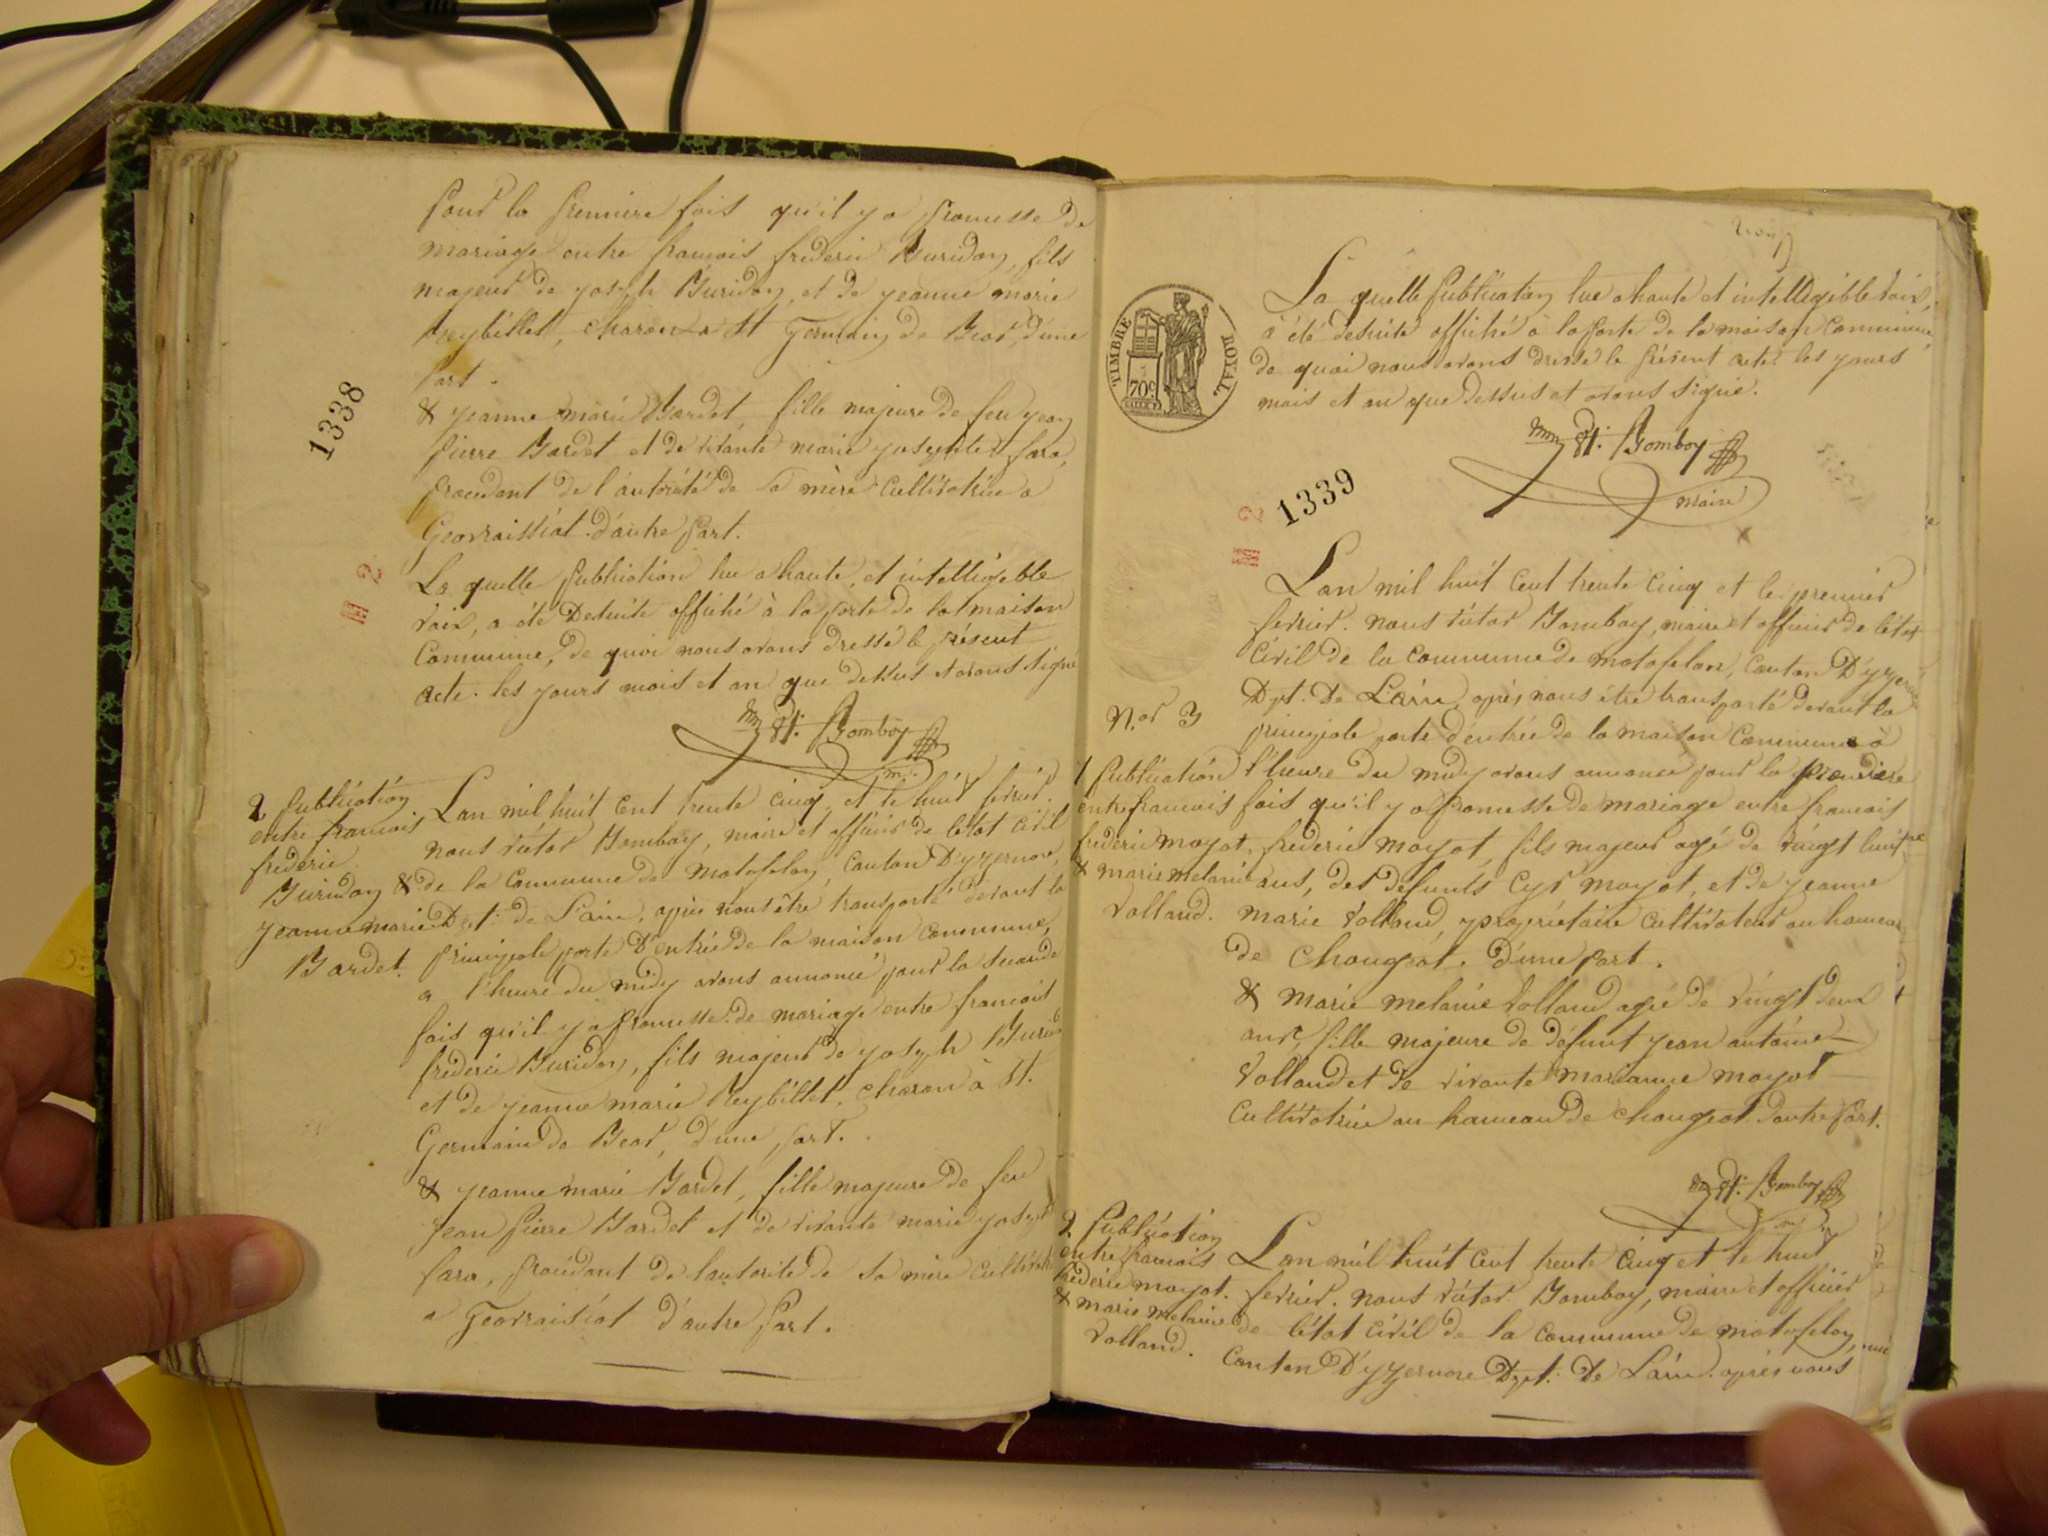 1338
pour la premiere fois qu'il y a promesse de
mariage entre francois frederic Buridon, fils
majeur de joseph Buridon, et de jeanne marie
Reybillet, charon a St Germain de Beard, d'une
part.
& jeanne marie Bardet, fille majeure de feu jean
pierre Bardet et de vivante marie josephte fara,
procedant de l'autorité de sa mère cultivatrice a
Geovraissiat. d'autre part.
La quelle publication lue a haute, et intelligeble
voix, a été desuite affiché à la porte de la maison
commune, de quoi nous avons dressé le présent
acte. les jours mois et an que dessus et avons signé
Vor. Bomboy
m.
2 publication
entre francois
frederic
Buridon &
jeanne marie
Bardet.
Lan mil huit cent trente cinq, et le huit fevrier.
nous victor Bomboy, maire et officier de l'état civil
de la commune de matafelon, canton D'yzernore,
Dpt: de L'ain, après nous être transporté devant la
principale porte D'entrée de la maison commune,
a l'heure du midy avons annoncé pour la seconde
fois qu'il y a promesse de mariage entre francois
frederic Buridon, fils majeur de joseph Burid
et de jeanne marie Reybillet. charon à St.
Germain de Beard, d'une part.
& jeanne marie Bardet, fille majeure de feu
jean pierre Bardet et de vivante marie joseph
fara, procédant de l'autorité de sa mère cultivat
a Geovraisiat d'autre part.
TIMBRE ROYAL
70c
La quelle publication lue a haute et intelligible voix,
a été desuite affiché à la porte de la maison commune
de quoi nous avons dressé le présent acte les jours
mois et an que dessus et avons signé.
Vor. Bomboy
maire
1339
Lan mil huit cent trente cinq et le premier
fevrier. nous victor Bomboy, maire et officier de l'état
civil de la commune de matafelon, canton D'yzernore
Dpt: De L'ain, après nous être transporté devant la
principale porte d'entrée de la maison commune à
l'heure du midy avons annoncé pour la premiere
fois qu'il y a promesse de mariage entre francois
frederic moyat, fils majeur agé de vingt huit
ans, des defunts Cyr moyat, et de jeanne
marie volland, propriétaire cultivateur au hameau
de Chougeat. d'une part.
& marie melanie volland agé de vingt deux
ans, fille majeure de défunt jean antoine
volland et de vivante marianne moyat
cultivatrice au hameau de chougeat d'autre part.
N.or 3
1 publication
entre francois
frederic moyat.
& marie melanie
volland.
Vor. Bomboy
m
2 publication
entre francois
frederic moyat.
& marie melanie
volland.
Lan mil huit cent trente cinq et le huit
fevrier. nous victor Bomboy, maire et officier
de l'état civil de la commune de matafelon,
canton D'yzernore Dpt: de L'ain. après nous